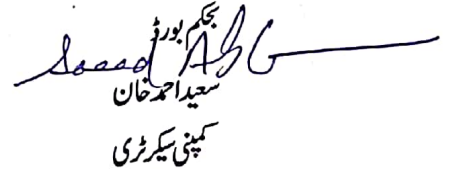 بحکم بورڈ
Saeed A
سعید احمد خان
کمپنی سیکرٹری